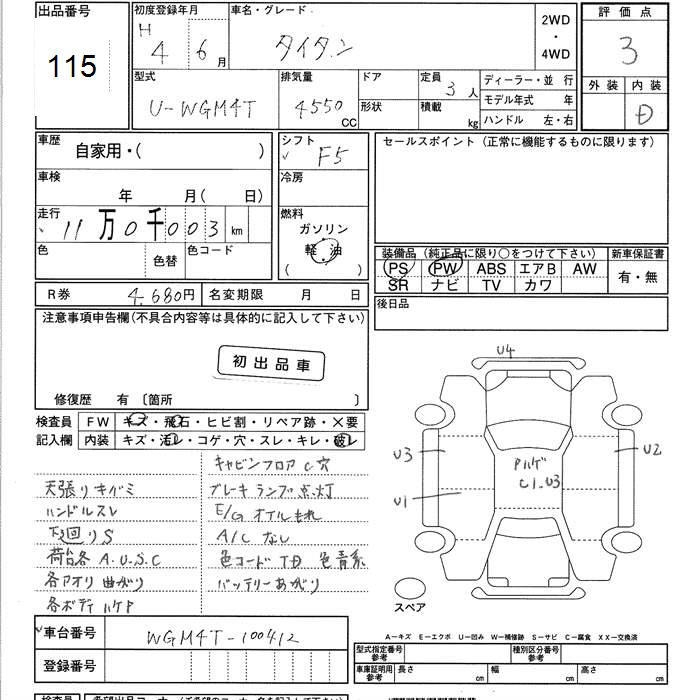 出品番号
115
初度登録年月
H 4 6月
車名・グレード
タイタン
2WD
・
4WD
評価点
3
外装 内装
D
型式
U-WGM4T
排気量
4550 CC
ドア
形状
定員 3人
積載 kg
ディーラー・並 行
モデル年式 年
ハンドル 左・右
車歴
自家用・( )
シフト F5
セールスポイント (正常に機能するものに限ります)
車検
年 月( 日)
冷房
走行
11万0千003km
燃料
ガソリン
軽油
( )
色
色替
色コード
装備品 (純正品に限り○をつけて下さい)
新車保証書
PS PW ABS エアB AW
SR ナビ TV カワ
有・無
R券 4,680円
名変期限 月 日
後日品
注意事項申告欄(不具合内容等は具体的に記入して下さい)
初出品車
修復歴 有 〔箇所 〕
検査員
記入欄
FW キズ・飛石・ヒビ割・リペア跡・×要
内装 キズ・汚レ・コゲ・穴・スレ・キレ・破レ
キャビンフロアC穴
天張りキバミ
ブレーキランプ点灯
ハンドルスレ
E/Gオイルもれ
下回りS
A/Cなし
荷台各A.U.S.C
色コードTD 色青系
各アオリ曲がり
バッテリーあがり
各ボディハゲP
U4
U3
U2
U1
アルゲ
C1.U3
スペア
車台番号 WGM4T-100412
登録番号
A−キズ E−エクボ U−凹み W−補修跡 S−サビ C−腐食 XX−交換済
型式指定番号
参考
種別区分番号
参考
車庫証明用
参考
長さ cm
幅 cm
高さ cm